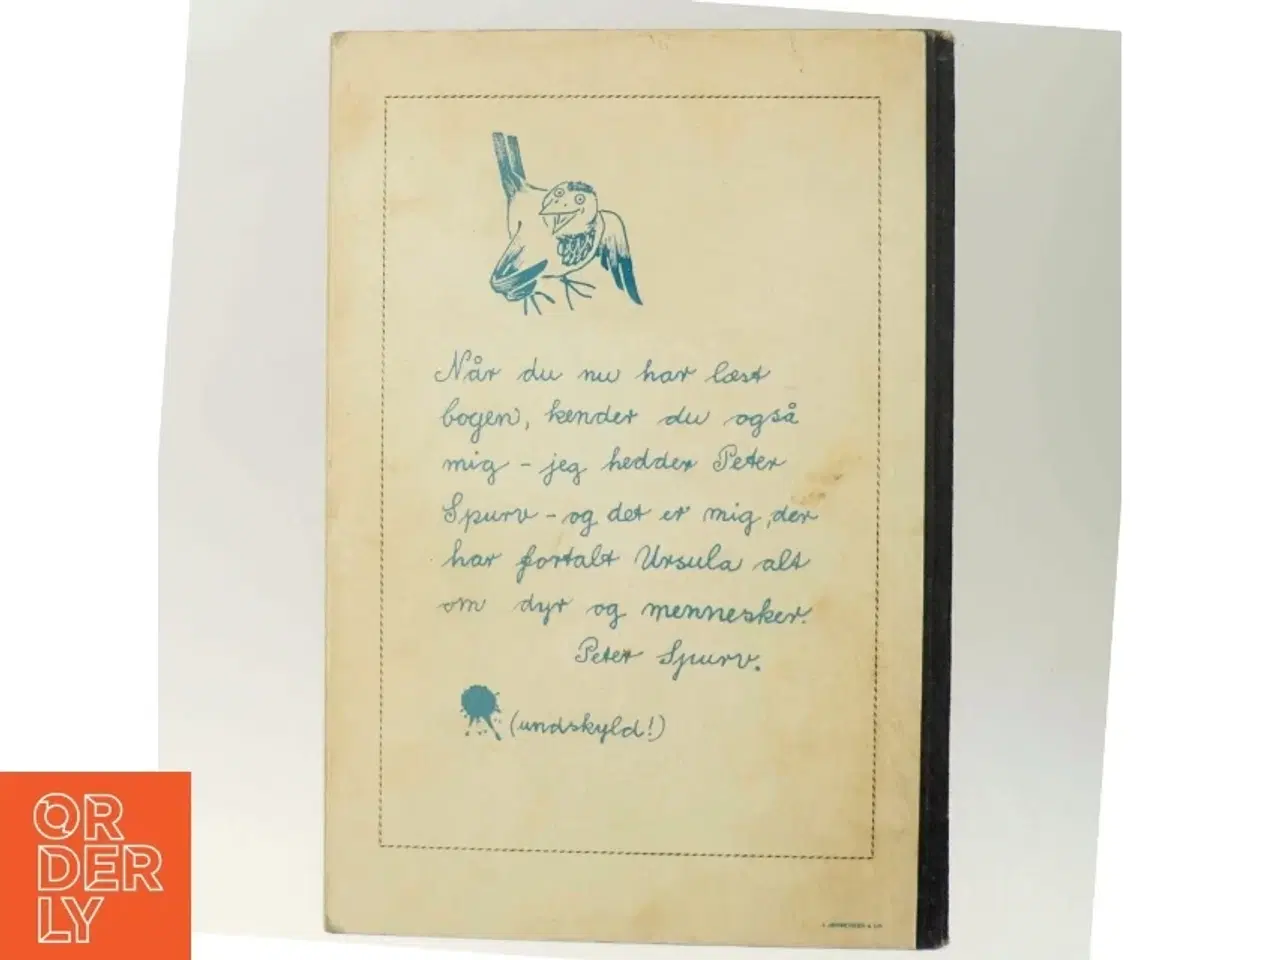 Når du nu har læst
bogen, kender du også
mig - jeg hedder Peter
Spurv - og det er mig, der
har fortalt Ursula alt
om dyr og mennesker.
Peter Spurv.
(undskyld!)
OR
DER
LY